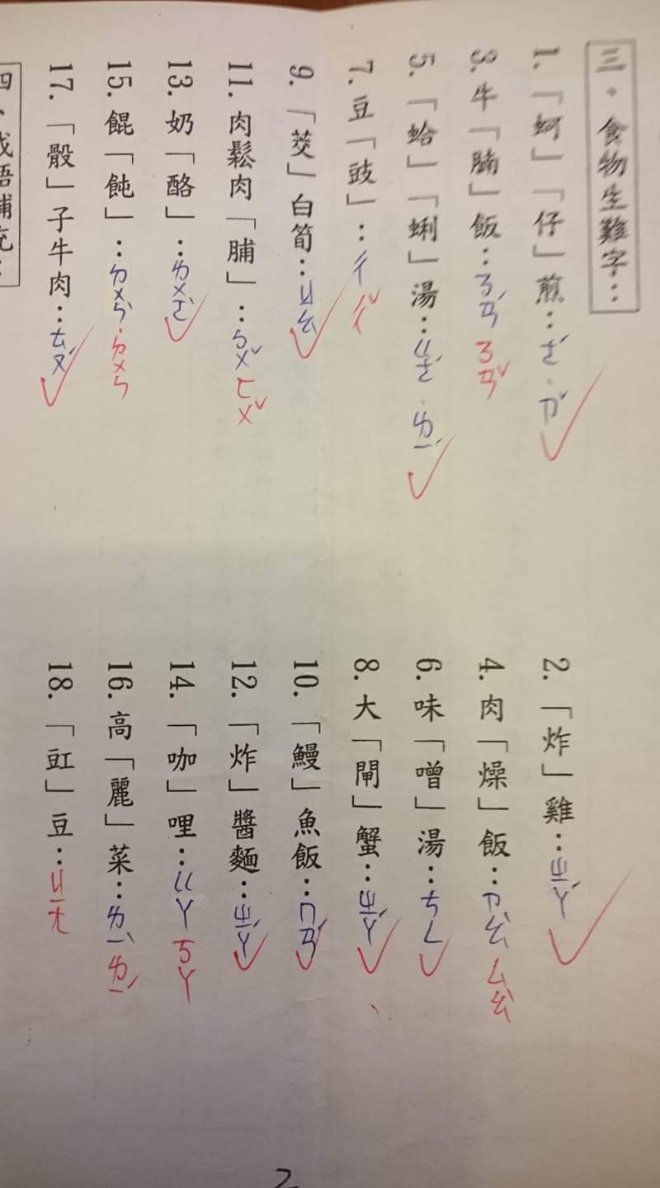 三。食物生難字：
1.「蚵」「仔」煎：ㄜˊ.ㄗˇ
2.「炸」雞：ㄓㄚˊ
3.牛「腩」飯：ㄋㄢˊ ㄋㄢˇ
4.肉「燥」飯：ㄗㄠˋ ㄙㄠˋ
5.「蛤」「蜊」湯：ㄍㄜˊ.ㄌㄧˊ
6.味「噌」湯：ㄘㄥ
7.豆「豉」：ㄔˊ ㄔˇ
8.大「閘」蟹：ㄓㄚˊ
9.「茭」白筍：ㄐㄧㄠ
10.「鰻」魚飯：ㄇㄢˊ
11.肉鬆肉「脯」：ㄅㄨˇ ㄈㄨˇ
12.「炸」醬麵：ㄓㄚˊ
13.奶「酪」：ㄌㄨㄛˋ
14.「咖」哩：ㄍㄚ ㄎㄚ
15.餛「飩」：ㄉㄨㄣˋ.ㄉㄨㄣ
16.高「麗」菜：ㄌㄧˋ ㄌㄧˊ
17.「骰」子牛肉：ㄊㄡˊ
18.「豇」豆：ㄐㄧㄤ
四、成語補充：
2